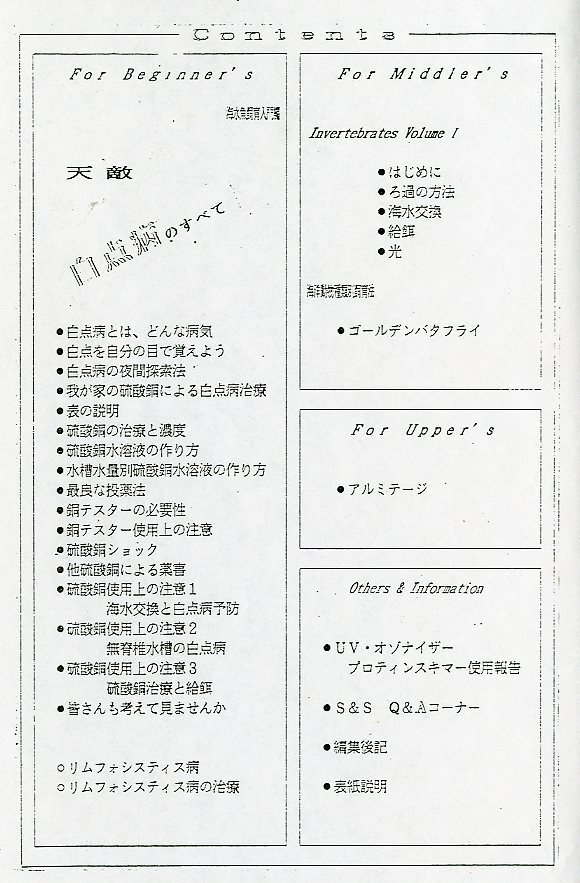 Contents
For Beginner's
海水魚飼育入門編
天敵
白点病のすべて
●白点病とは、どんな病気
●白点を自分の目で覚えよう
●白点病の夜間探索法
●我が家の硫酸銅による白点病治療
●表の説明
●硫酸銅の治療と濃度
●硫酸銅水溶液の作り方
●水槽水量別硫酸銅水溶液の作り方
●最良な投薬法
●銅テスターの必要性
●銅テスター使用上の注意
●硫酸銅ショック
●他硫酸銅による薬害
●硫酸銅使用上の注意1
海水交換と白点病予防
●硫酸銅使用上の注意2
無脊椎水槽の白点病
●硫酸銅使用上の注意3
硫酸銅治療と給餌
●皆さんも考えて見ませんか
○リムフォシスティス病
○リムフォシスティス病の治療
For Middler's
Invertebrates Volume I
●はじめに
●ろ過の方法
●海水交換
●給餌
●光
海洋動物種類別飼育法
●ゴールデンバタフライ
For Upper's
●アルミテージ
Others & Information
●UV・オゾナイザー
プロティンスキマー使用報告
●S&S Q&Aコーナー
●編集後記
●表紙説明